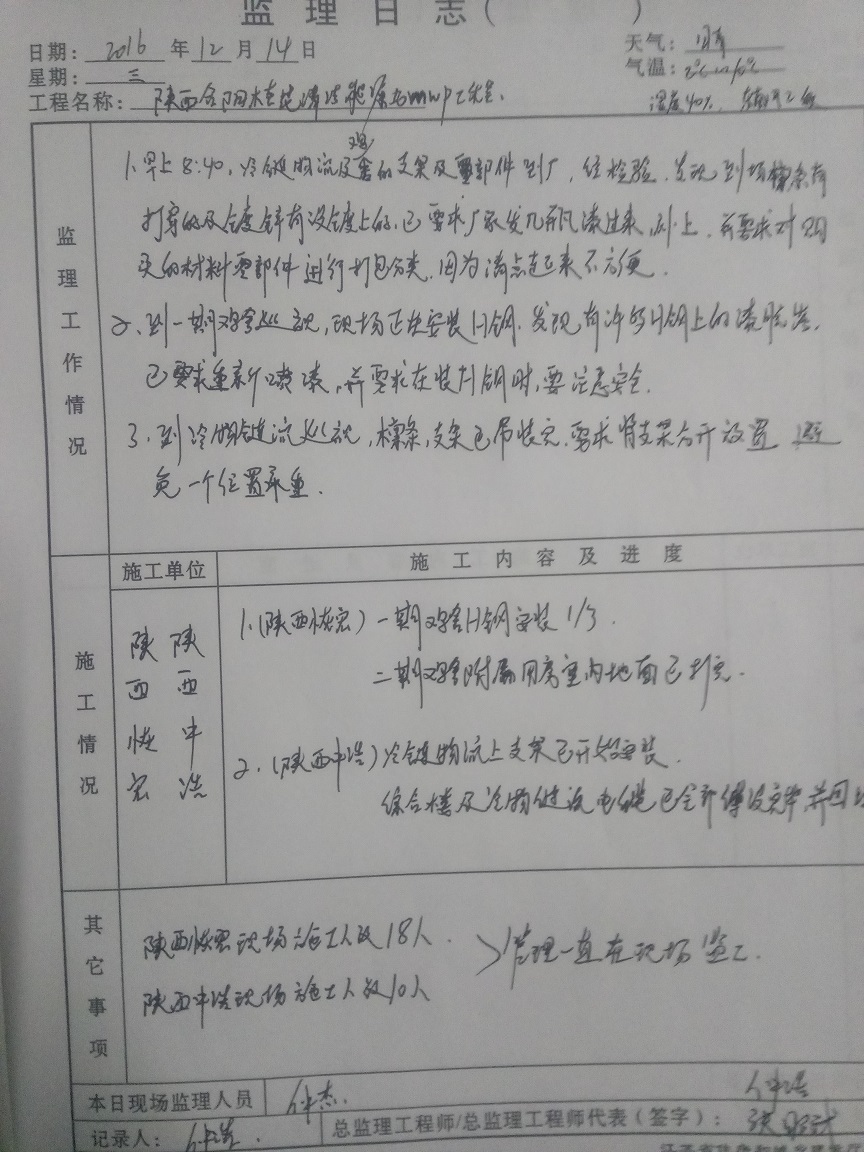 监理日志（ ）
日期： 2016 年 12 月 14 日
天气： 晴
星期： 三
气温：
工程名称： 陕西合阳
湿度40%,
1、早上8:40，冷链物流及鸡舍的支架及零部件到厂，经检验，发现到场檩条有
打穿的及镀锌有没镀上的，已要求厂家发几瓶漆过来，刷上，并要求对购
买的材料零部件进行打包分类，因为清点起来不方便。
2、到一期鸡舍巡视，现场正在安装H钢，发现有许多H钢上的漆脱落，
已要求重新喷漆，并要求在装H钢时，要注意安全。
3、到冷链物流巡视，檩条，支架已吊装完，要求将支架分开放置 避
免一个位置承重。
监理工作情况
施工单位
施工内容及进度
施工情况
陕西恢宏
陕西中浩
1.(陕西恢宏) 一期鸡舍H钢安装1/3.
二期鸡舍附属用房室内地面已打完.
2.(陕西中浩) 冷链物流上支架已开始安装.
综合楼及冷链物流电缆已全部铺设完毕,并回
其它事项
陕西恢宏现场施工人数18人.
监理一直在现场监工.
陕西中浩现场施工人数10人
本日现场监理人员
仲杰.
记录人：
总监理工程师/总监理工程师代表（签字）：